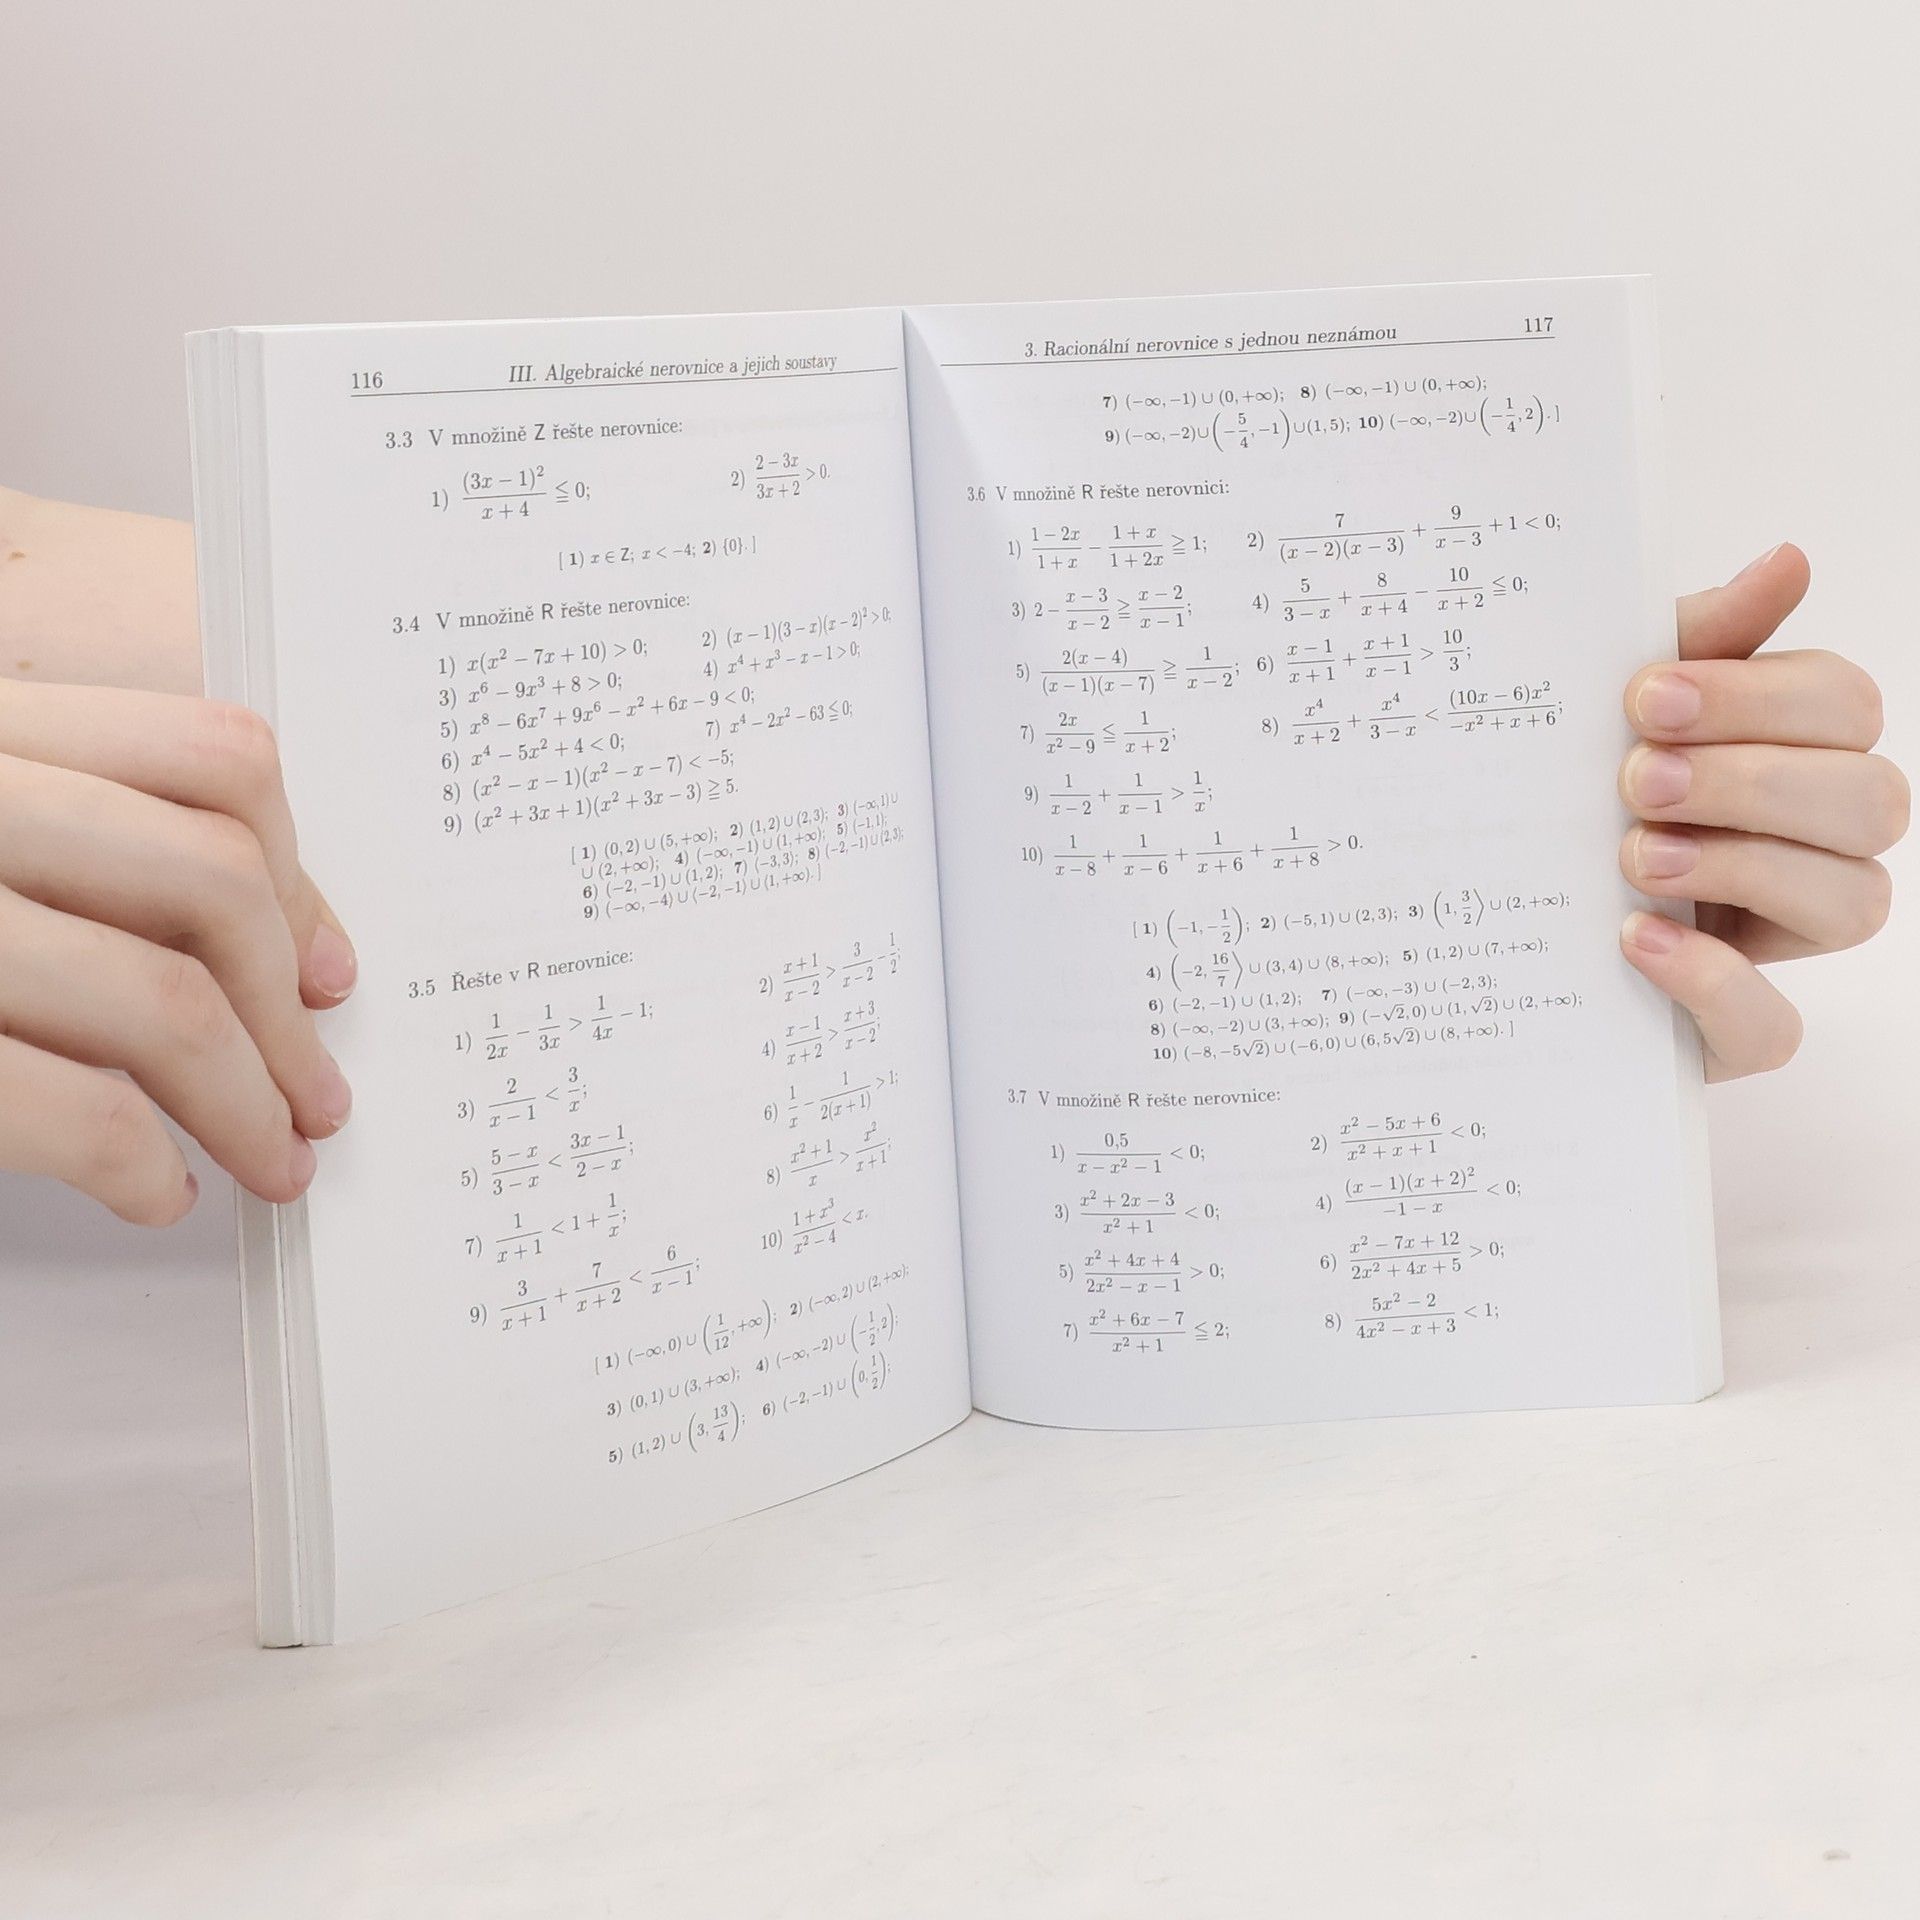 116 III. Algebraické nerovnice a jejich soustavy
3.3 V množině Z řešte nerovnice:
1) (3x − 1)²/(x + 4) ≦ 0; 2) (2 − 3x)/(3x + 2) > 0.
[ 1) x ∈ Z; x < −4; 2) {0}. ]
3.4 V množině R řešte nerovnice:
1) x(x² − 7x + 10) > 0; 2) (x − 1)(3 − x)(x − 2)² > 0;
3) x⁶ − 9x³ + 8 > 0; 4) x⁴ + x³ − x − 1 > 0;
5) x⁸ − 6x⁷ + 9x⁶ − x² + 6x − 9 < 0;
6) x⁴ − 5x² + 4 < 0; 7) x⁴ − 2x² − 63 ≦ 0;
8) (x² − x − 1)(x² − x − 7) < −5;
9) (x² + 3x + 1)(x² + 3x − 3) ≧ 5.
[ 1) (0, 2) ∪ (5, +∞); 2) (1, 2) ∪ (2, 3); 3) (−∞, 1) ∪
∪ (2, +∞); 4) (−∞, −1) ∪ (1, +∞); 5) (−1, 1);
6) (−2, −1) ∪ (1, 2); 7) ⟨−3, 3⟩; 8) (−2, −1) ∪ (2, 3);
9) (−∞, −4⟩ ∪ ⟨−2, −1⟩ ∪ ⟨1, +∞). ]
3.5 Řešte v R nerovnice:
1) 1/2x − 1/3x > 1/4x − 1; 2) (x + 1)/(x − 2) > 3/(x − 2) − 1/2;
3) 2/(x − 1) < 3/x; 4) (x − 1)/(x + 2) > (x + 3)/(x − 2);
5) (5 − x)/(3 − x) < (3x − 1)/(2 − x); 6) 1/x − 1/2(x + 1) > 1;
7) 1/(x + 1) < 1 + 1/x; 8) (x² + 1)/x > x²/(x + 1);
9) 3/(x + 1) + 7/(x + 2) < 6/(x − 1); 10) (1 + x³)/(x² − 4) < x.
[ 1) (−∞, 0) ∪ (1/12, +∞); 2) (−∞, 2) ∪ (2, +∞);
3) (0, 1) ∪ (3, +∞); 4) (−∞, −2) ∪ (−1/2, 2);
5) (1, 2) ∪ (3, 13/4); 6) (−2, −1) ∪ (0, 1/2);
3. Racionální nerovnice s jednou neznámou 117
7) (−∞, −1) ∪ (0, +∞); 8) (−∞, −1) ∪ (0, +∞);
9) (−∞, −2) ∪ (−5/4, −1) ∪ (1, 5); 10) (−∞, −2) ∪ (−1/4, 2). ]
3.6 V množině R řešte nerovnici:
1) (1 − 2x)/(1 + x) − (1 + x)/(1 + 2x) ≧ 1; 2) 7/(x − 2)(x − 3) + 9/(x − 3) + 1 < 0;
3) 2 − (x − 3)/(x − 2) ≧ (x − 2)/(x − 1); 4) 5/(3 − x) + 8/(x + 4) − 10/(x + 2) ≦ 0;
5) 2(x − 4)/(x − 1)(x − 7) ≧ 1/(x − 2); 6) (x − 1)/(x + 1) + (x + 1)/(x − 1) > 10/3;
7) 2x/(x² − 9) ≦ 1/(x + 2); 8) x⁴/(x + 2) + x⁴/(3 − x) < (10x − 6)x²/(−x² + x + 6);
9) 1/(x − 2) + 1/(x − 1) > 1/x;
10) 1/(x − 8) + 1/(x − 6) + 1/(x + 6) + 1/(x + 8) > 0.
[ 1) (−1, −1/2); 2) (−5, 1) ∪ (2, 3); 3) (1, 3/2⟩ ∪ (2, +∞);
4) (−2, 16/7⟩ ∪ (3, 4⟩ ∪ ⟨8, +∞); 5) (1, 2) ∪ (7, +∞);
6) (−2, −1) ∪ (1, 2); 7) (−∞, −3) ∪ (−2, 3);
8) (−∞, −2) ∪ (3, +∞); 9) (−√2, 0) ∪ (1, √2) ∪ (2, +∞);
10) (−8, −5√2) ∪ (−6, 0) ∪ (6, 5√2) ∪ (8, +∞). ]
3.7 V množině R řešte nerovnice:
1) 0,5/(x − x² − 1) < 0; 2) (x² − 5x + 6)/(x² + x + 1) < 0;
3) (x² + 2x − 3)/(x² + 1) < 0; 4) (x − 1)(x + 2)²/(−1 − x) < 0;
5) (x² + 4x + 4)/(2x² − x − 1) > 0; 6) (x² − 7x + 12)/(2x² + 4x + 5) > 0;
7) (x² + 6x − 7)/(x² + 1) ≦ 2; 8) (5x² − 2)/(4x² − x + 3) < 1;